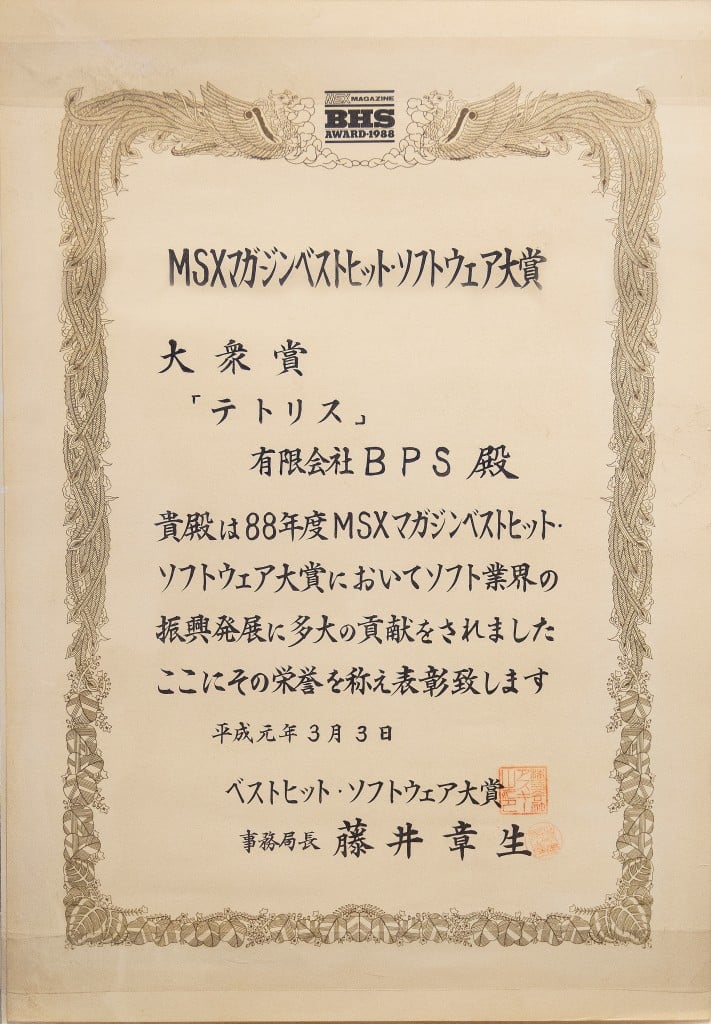 MSX MAGAZINE
BHS
AWARD・1988
MSXマガジンベストヒット・ソフトウェア大賞
大衆賞
「テトリス」
有限会社BPS殿
貴殿は88年度MSXマガジンベストヒット・
ソフトウェア大賞においてソフト業界の
振興発展に多大の貢献をされました
ここにその栄誉を称え表彰致します
平成元年3月3日
ベストヒット・ソフトウェア大賞
事務局長 藤井章生